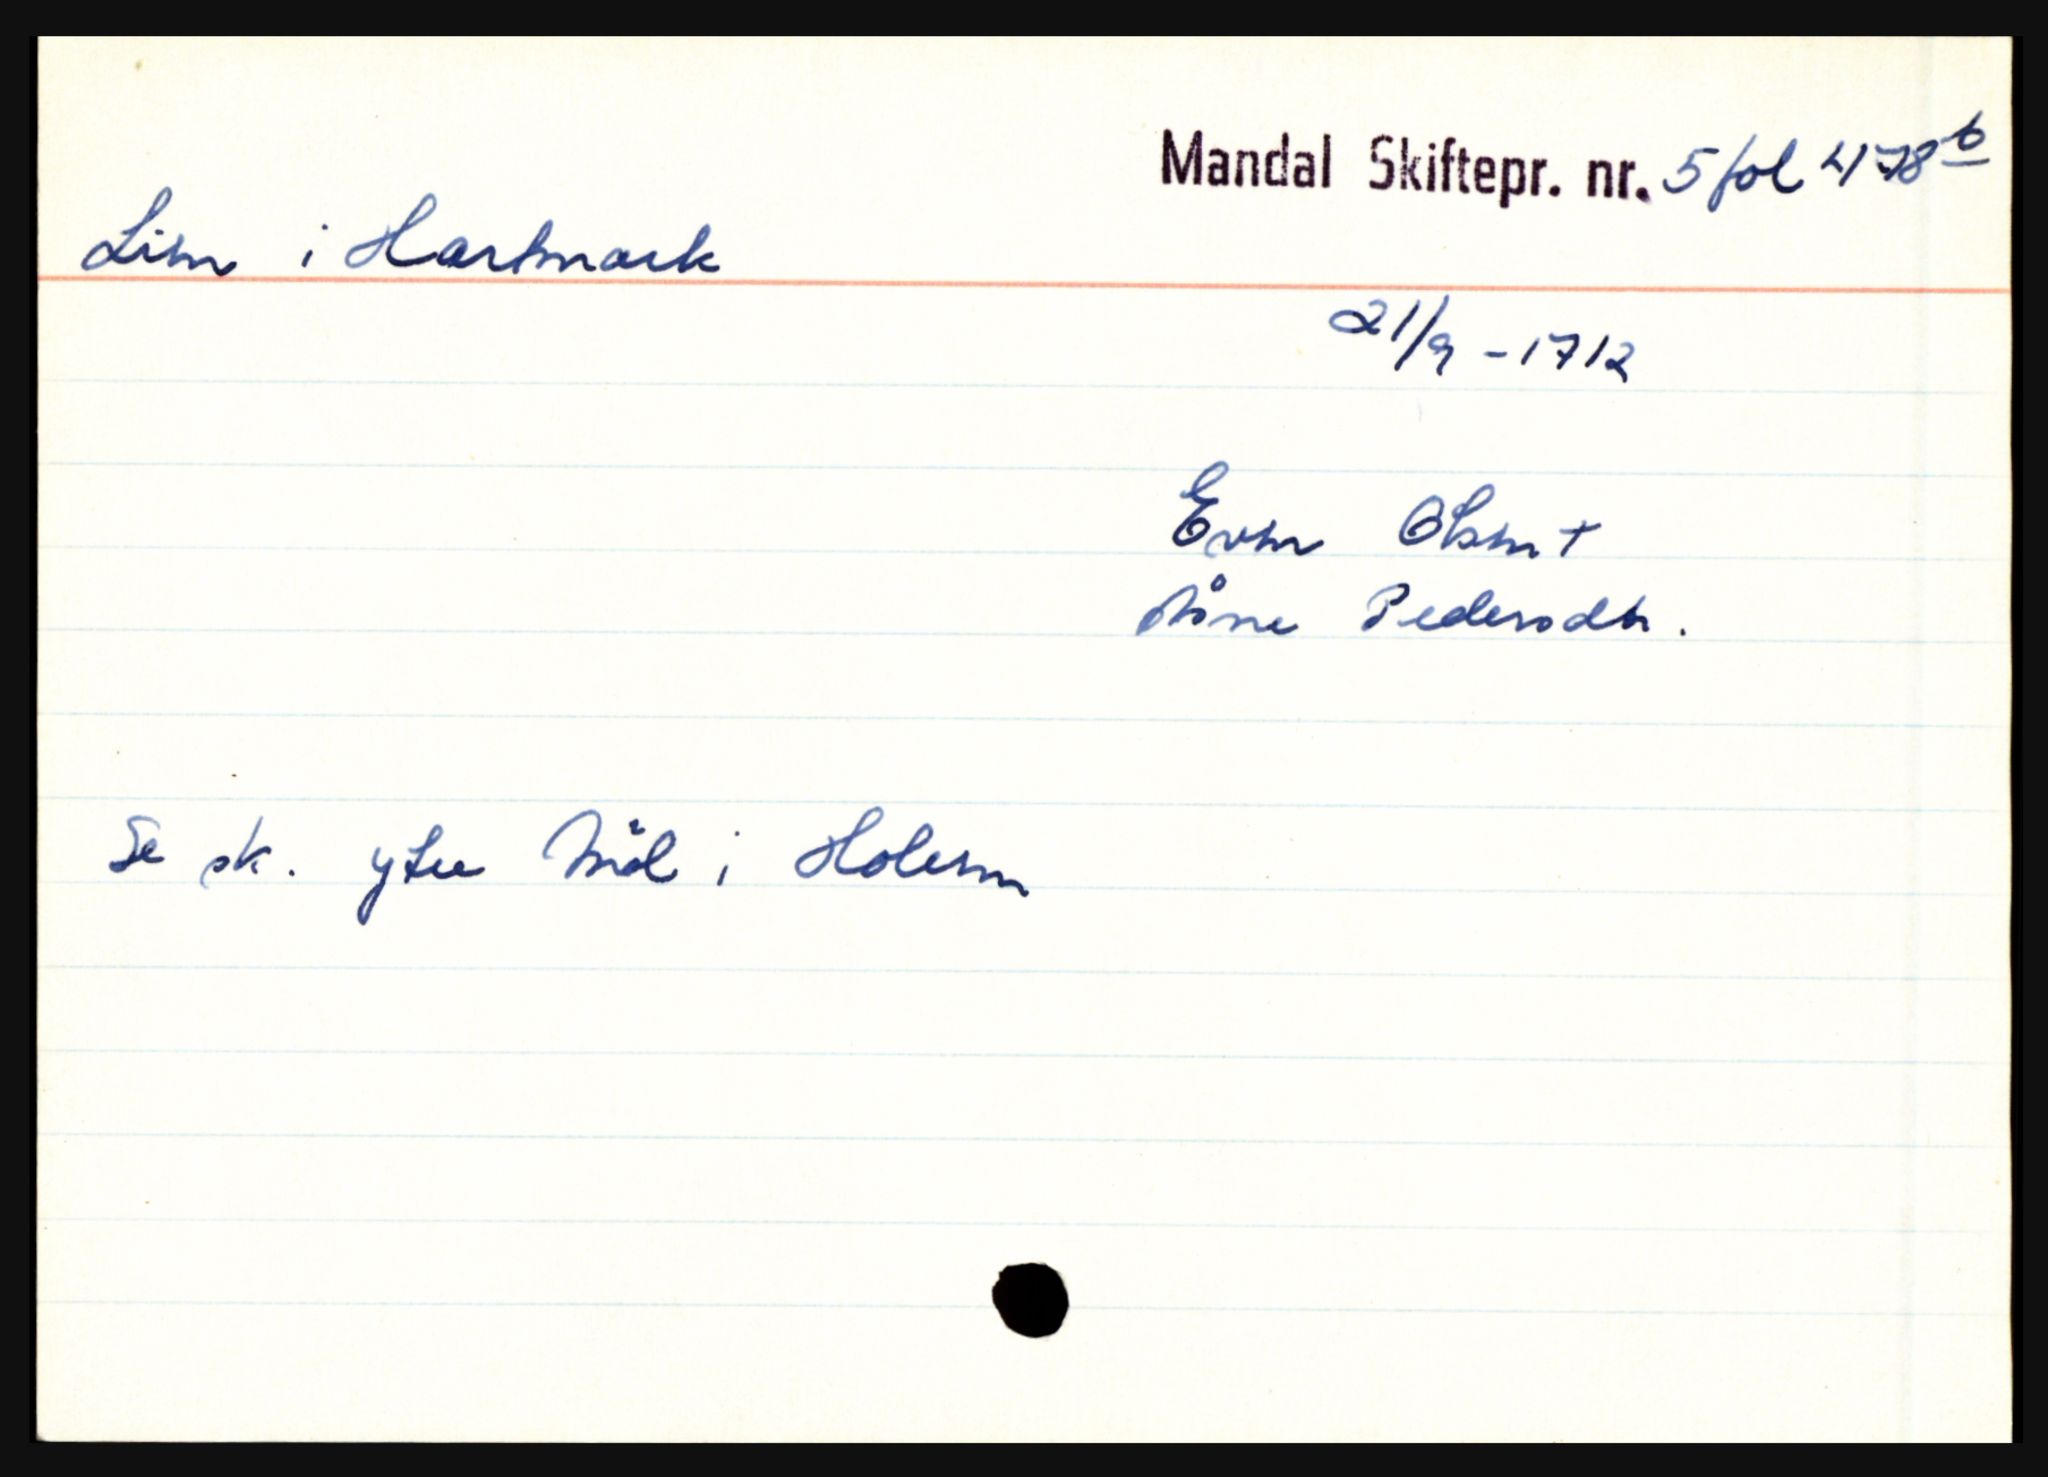 Mandal Skiftepr. nr. 5 fol 478b
Lien i Hartmark
21/9 - 1712
Even Olsen +
Åne Pedersdtr.
Se sk. ytre Møl i Holum